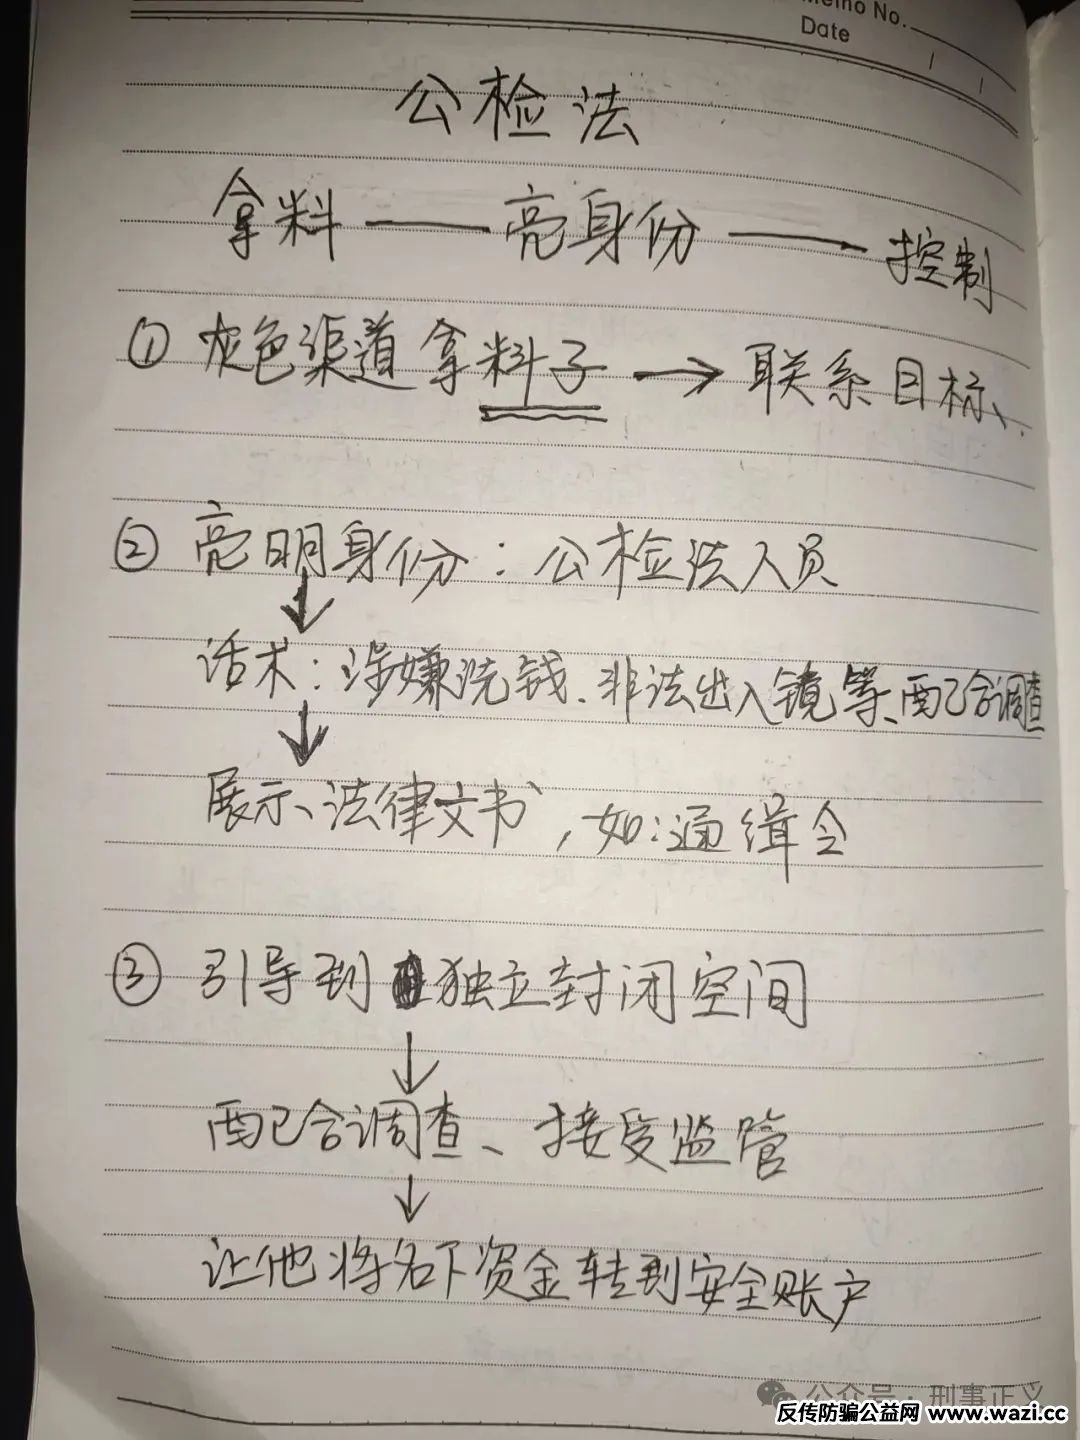 Memo No.
Date
公检法
拿料——亮身份——控制
① 灰色渠道拿料子→联系目标、
② 亮明身份：公检法人员
↓
话术：涉嫌洗钱、非法出入镜等、配合调查
↓
展示、法律文书，如：通缉令
③ 引导到独立封闭空间
↓
配合调查、接受监管
↓
让他将名下资金转到安全账户
公众号·刑事正义
反传防骗公益网 www.wazi.cc